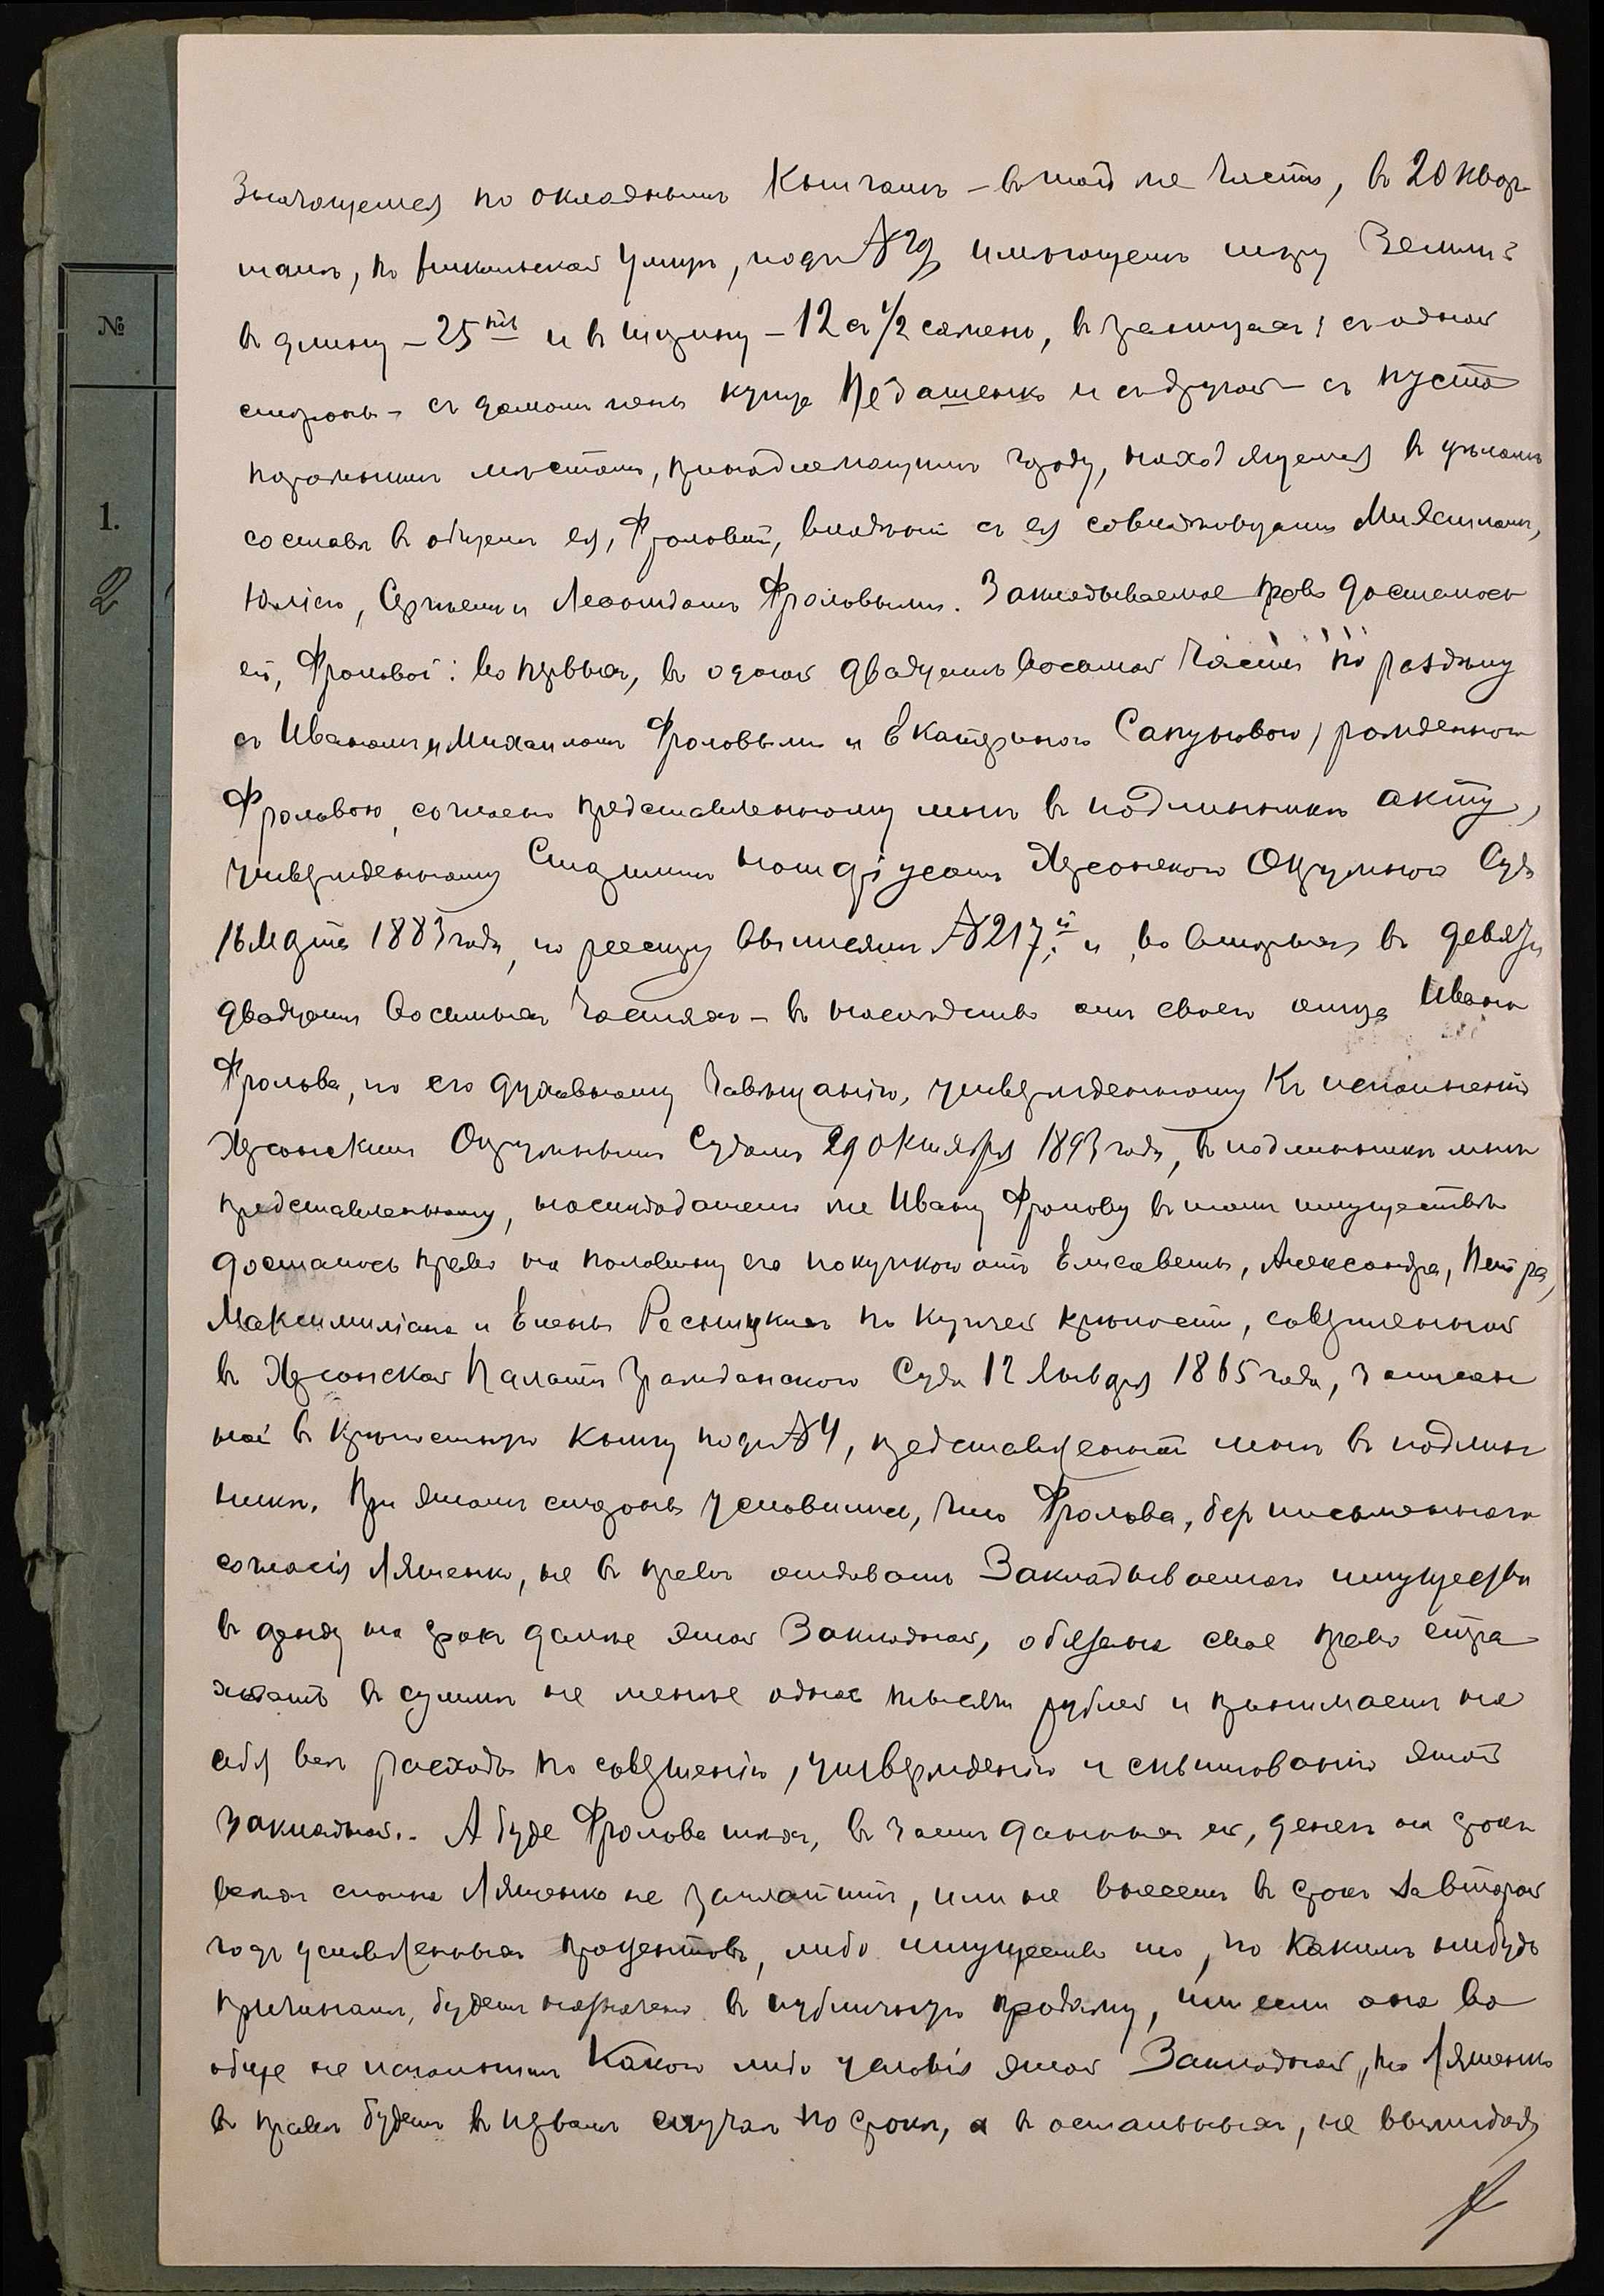 №
1.
2
значущемся по окладнымъ книгамъ – въ той же части, въ 20 квар-
талѣ, по улицѣ, подъ № 29, имѣющемъ мѣру земли:
въ длину – 25ть и въ ширину – 12 съ 1/2 сажень, въ границахъ: съ одной
стороны – съ домомъ жены купца Недашенко и съ другой – съ пусто
порожнимъ мѣстомъ, принадлежащимъ городу, находящемся въ цѣломъ
составѣ въ общемъ ея, Фроловой, владѣніи съ ея совладѣльцами Михаиломъ,
Юліею, Сергѣемъ и Леонидомъ Фроловыми. Закладываемое право досталось
ей, Фроловой: во первыхъ, въ одной двадцать восьмой части по раздѣлу
съ Иваномъ и Михаиломъ Фроловыми и Екатериною Сапуновою, рожденною
Фроловою, согласно представленному мнѣ въ подлинникѣ акту,
утвержденному Старшимъ Нотаріусомъ Херсонскаго Окружнаго Суда
16 Марта 1883 года, по реестру выписямъ № 217.й и, во вторыхъ, въ девяти
двадцать восьмыхъ частяхъ – въ наслѣдство отъ своего отца Ивана
Фролова, по его духовному завѣщанію, утвержденному къ исполненію
Херсонскимъ Окружнымъ Судомъ 29 Октября 1893 года, въ подлинникѣ мнѣ
представленному, наслѣдодателю же Ивану Фролову въ томъ имуществѣ
досталось право на половину его покупкою отъ Елисаветы, Александра, Петра,
Максимиліана и Елены Росницкихъ по купчей крѣпости, совершенной
въ Херсонской Палатѣ Гражданскаго Суда 12 Января 1865 года, записан
ной въ крѣпостную книгу подъ № 4, представленной мнѣ въ подлин
никѣ. При этомъ стороны условились, что Фролова, безъ письменнаго
согласія Ляшенко, не въ правѣ отдавать закладываемаго имущества
въ аренду на срокъ далѣе этой закладной, обязана свое право стра
ховать въ суммѣ не менѣе одной тысячи рублей и принимаетъ на
себя всѣ расходы по совершенію, утвержденію и этой
закладной. А буде Фролова тѣхъ, въ заемъ данныхъ ей, денегъ на срокъ
всѣхъ сполна Ляшенко не заплатитъ, или не внесетъ въ срокъ за второй
годъ условленныхъ процентовъ, либо имущество то, по какимъ нибудь
причинамъ, будетъ назначено въ публичную продажу, или если она во
обще не исполнитъ какого либо условія этой закладной, то Ляшенко
въ правѣ будетъ въ первомъ случаѣ по срокѣ, а въ остальныхъ, не выжидая